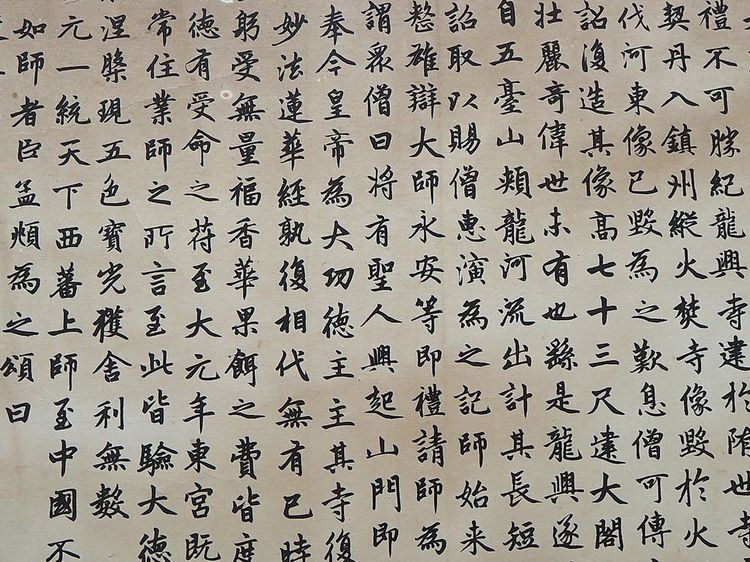 禮不可勝紀龍興寺建於隋世寺
契丹入鎮州縱火焚寺像毀於火
伐河東像已毀為之歎息僧可傳
詔復造其像高七十三尺建大閣
壯麗奇偉世未有也繇是龍興遂
自五臺山頰龍河流出計其長短
詔取以賜僧惠演為之記師始来
整雄辯大師永安等即禮請師為
謂眾僧曰將有聖人興起山門即
奉今皇帝為大功德主主其寺復
妙法蓮華經孰復相代無有已時
躬受無量福香華果餌之費皆度
德有受命之符至大元年東宮既
常住業師之所言至此皆驗大德
涅槃現五色寶光獲舍利無數
元一統天下西蕃上師至中國不
如師者臣孟頫為之頌曰